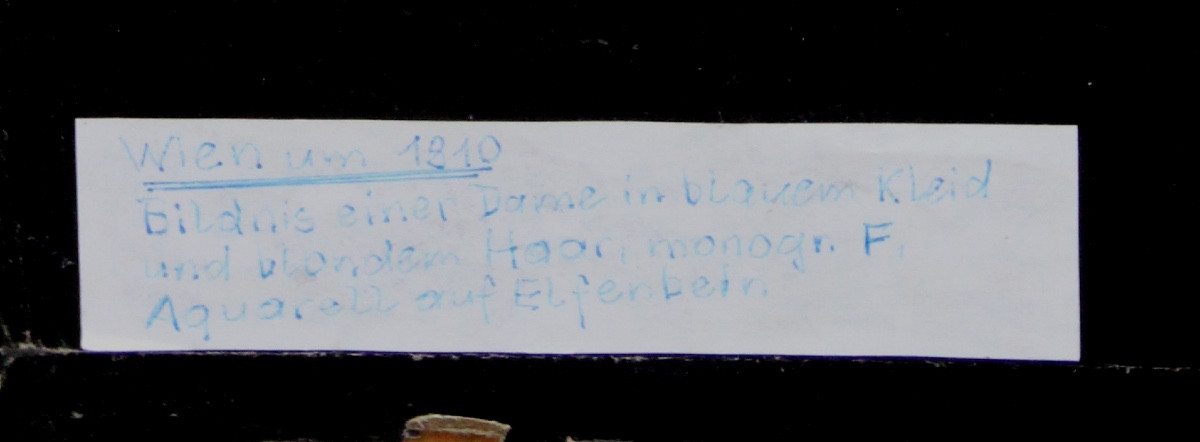 Wien um 1810
Bildnis einer Dame in blauem Kleid
und blondem Haar, monogr. F,
Aquarell auf Elfenbein